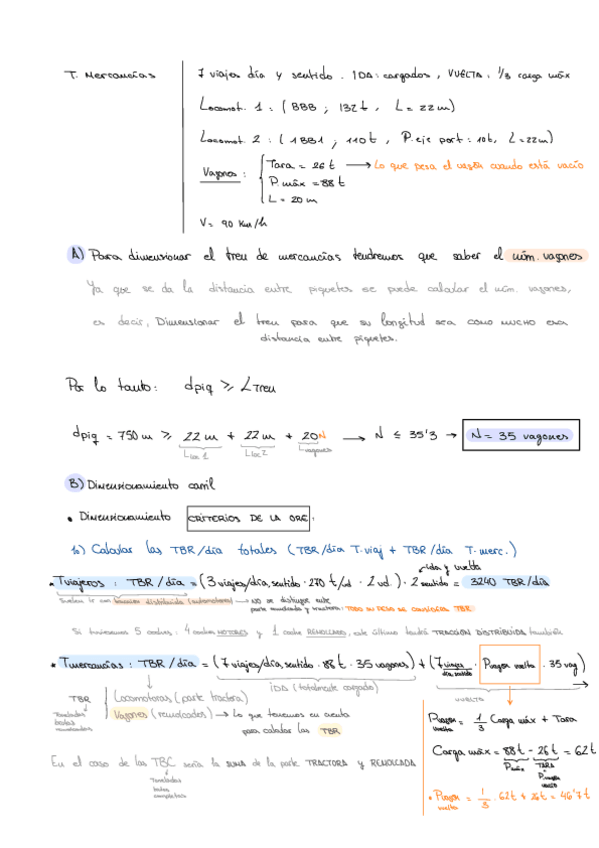 T. Mercancías
7 viajes día y sentido. IDA: cargados, VUELTA: 1/3 carga máx
Locomot. 1: (BBB; 132t, L = 22m)
Locomot. 2: (1BB1; 110t, P.eje port: 10t, L=22m)
Vagones: Tara = 26 t → Lo que pesa el vagón cuando está vacío
P. máx = 88 t
L = 20 m
V = 90 Km/h
A) Para dimensionar el tren de mercancías tendremos que saber el núm. vagones
Ya que se da la distancia entre piquetes se puede calcular el núm. vagones,
es decir, Dimensionar el tren para que su longitud sea como mucho esa
distancia entre piquetes.
Por lo tanto: dpiq ⩾ L Tren
dpiq = 750 m ⩾ 22 m + 22 m + 20N → N ≤ 35'3 → N = 35 vagones
Lloc 1 Lloc 2 Lvagones
B) Dimensionamiento carril
• Dimensionamiento CRITERIOS DE LA ORE:
1º) Calcular las TBR/día totales (TBR/día T.viaj + TBR/día T.merc.)
ida y vuelta
* Tviajeros: TBR/día = (3 viajes/día,sentido · 270 t/ud · 2 ud.) · 2 sentido = 3240 TBR/día
Suelen ir con tracción distribuida (automotores) → NO se distingue entre
parte remolcada y tractora: TODO SU PESO SE CONSIDERA TBR
Si tuviéramos 5 coches: 4 coches MOTORES y 1 coche REMOLCADO, este último tendrá TRACCIÓN DISTRIBUIDA también
* Tmercancías: TBR/día = (7 viajes/día,sentido · 88 t · 35 vagones) + (7 viajes/día,sentido · Pvagon vuelta · 35 vag)
IDA (totalmente cargado)
VUELTA
TBR
Toneladas brutas remolcadas
Locomotoras (parte tractora)
Vagones (remolcados) → Lo que tenemos en cuenta
para calcular las TBR
En el caso de las TBC sería la SUMA de la parte TRACTORA y REMOLCADA
Toneladas
brutas
completas
Pvagon vuelta = 1/3 Carga máx + Tara
Carga máx = 88 t - 26 t = 62 t
Pmáx TARA
P.vagón
vacío
• Pvagon vuelta = 1/3 · 62t + 26t = 46'7 t